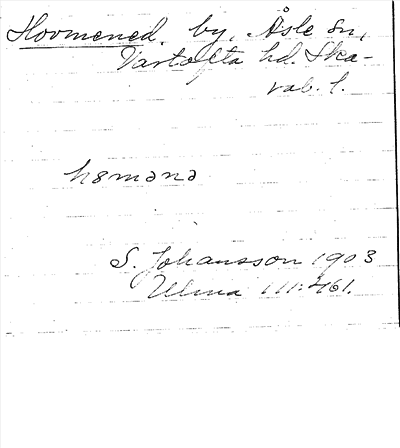 Hovmened. by, Åsle sn,
Vartofta hd. Ska-
rab. l.
hɞmənə
S. Johansson 1903
Ulma 111:461.